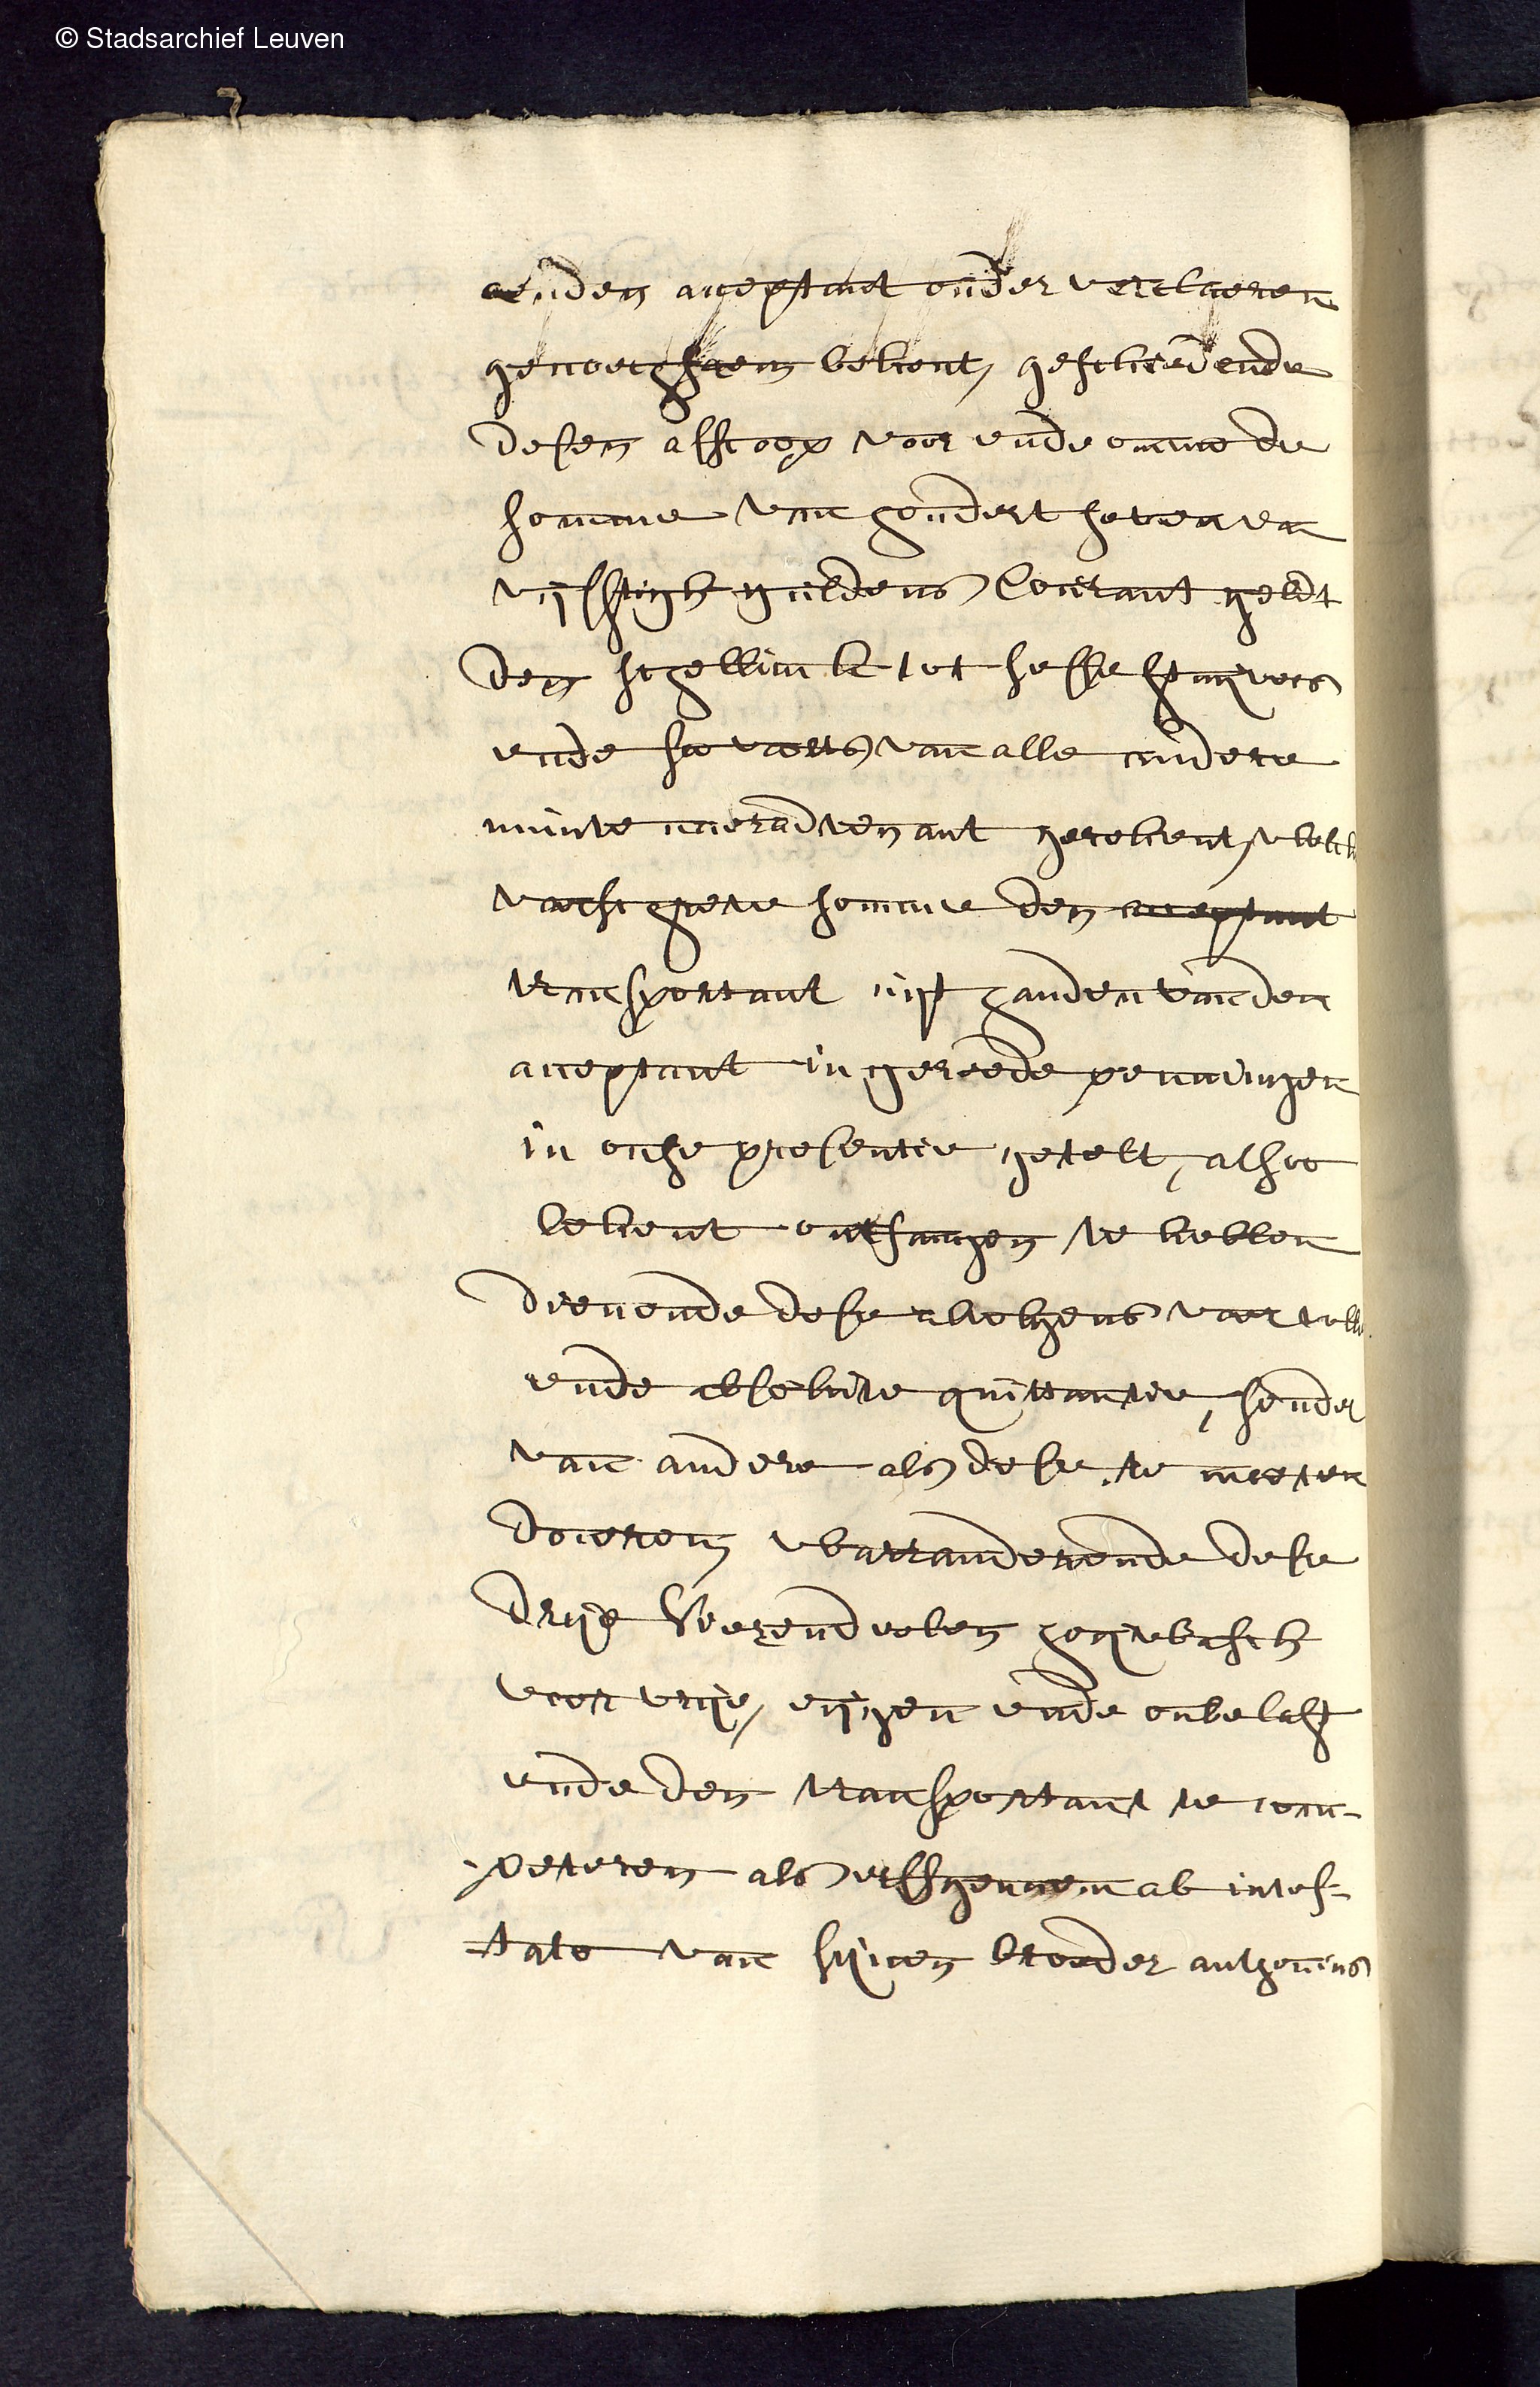 © Stadsarchief Leuven
aenden acceptant onder verclaeren
genoechsaem bekent, geschiedende
desen affcoop voor ende omme de
somme van hondert seven en
vijfftigh guldens Courant geldt
den schellinck tot sesse stuyvers
ende soo voorts van alle andere
munte naer advenant gerekent, welcke
voorschreve somme den acceptant
transportant uyt handen van den
acceptant in gereede penningen
in onse presentie getelt, alsoo
bekent ontfangen te hebben
dienende dese alvolgens voor volle
ende absolute quittantie, sonder
van andere als dese te moeten
doceren warranderende dese
drye vierendeelen hoywasch
voor vrije, eygen ende onbelast
ende den transportant te com-
peteren als erffgenaem ab intes-
tato van sijnen broeder anthonius